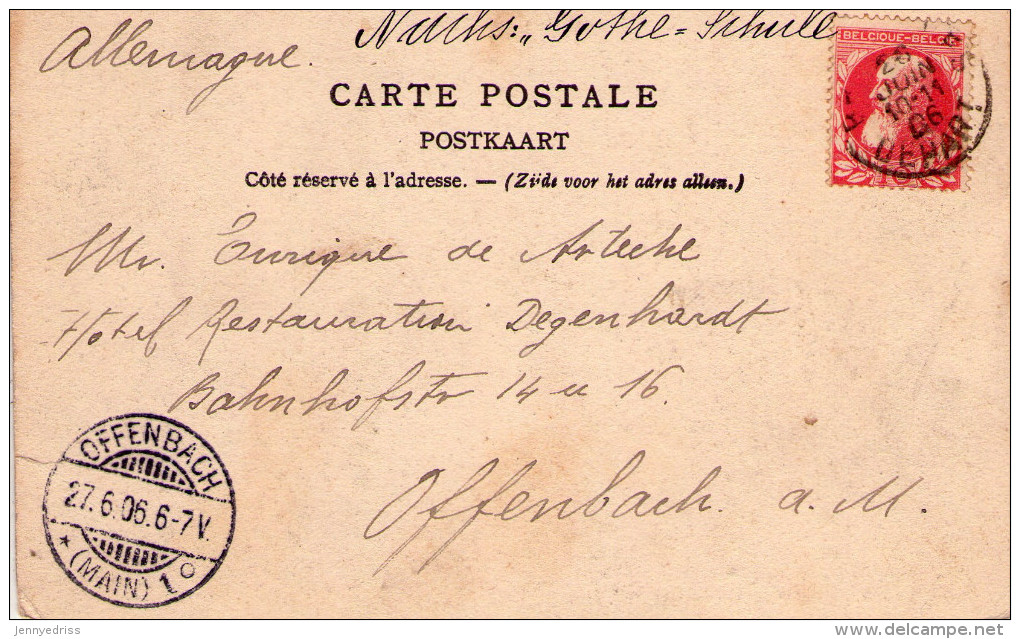 Allemagne.
Nachs: „Gothe=Schule
BELGIQUE-BELGI
26
JUIN
10-11
06
CARTE POSTALE
POSTKAART
Côté réservé à l'adresse. — (Zijde voor het adres alleen.)
Mr. Enrique de Arteche
Hotel Restauration Degenhardt
Bahnhofstr 14 u 16.
Offenbach a. M.
OFFENBACH
27.6.06.6-7V.
* (MAIN) 1 o
jennyedriss
delcampe.net